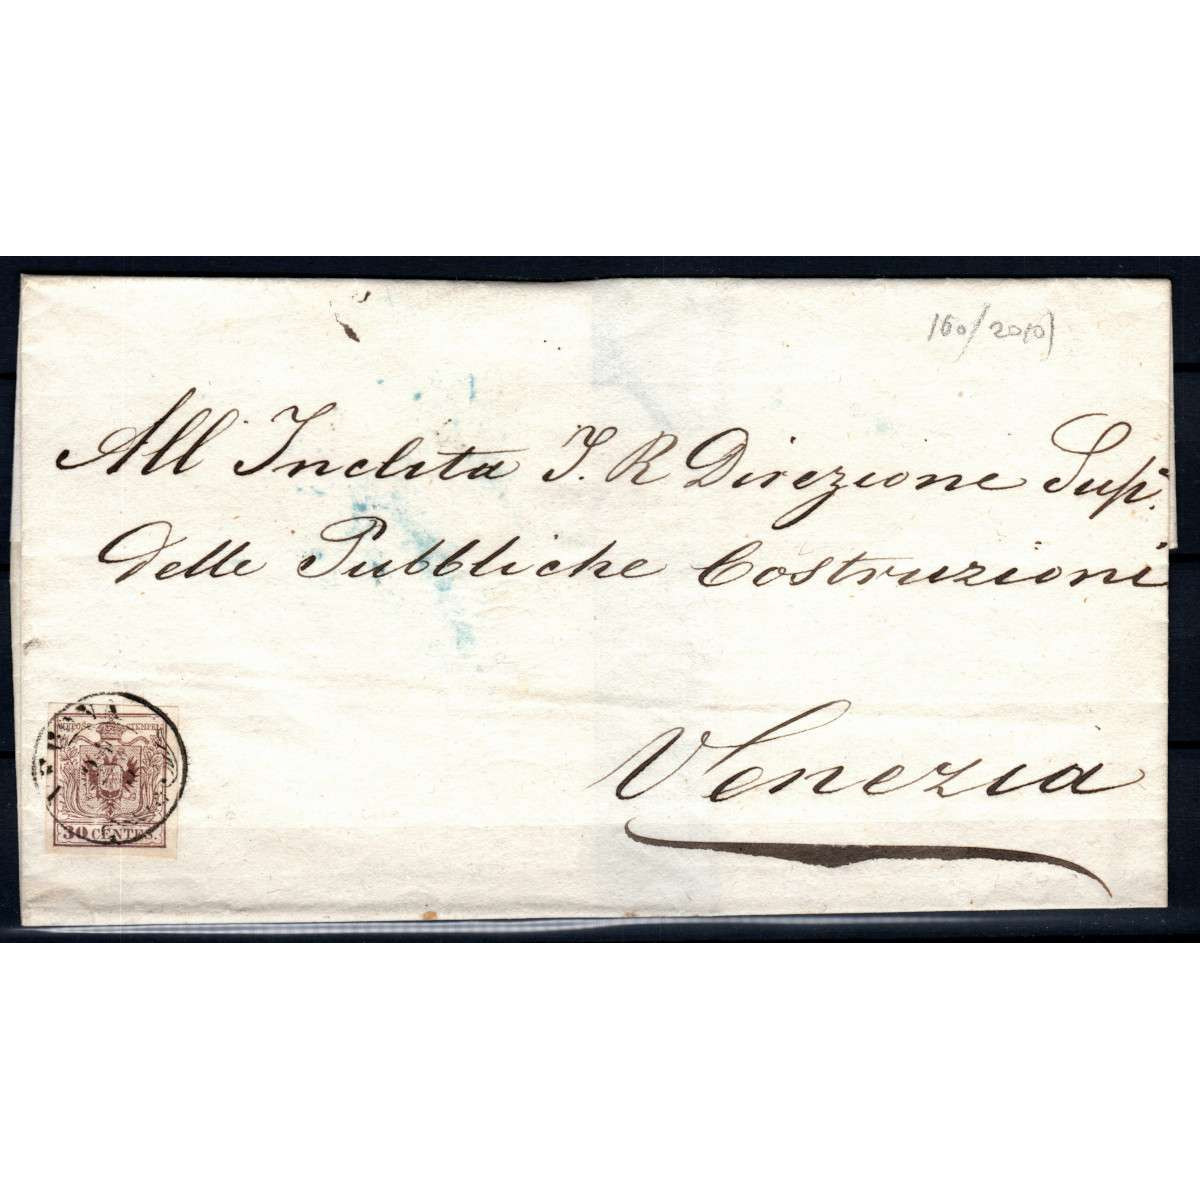 160/2010)
All Inclita I. R Direzione Sup.
delle Pubbliche Costruzioni
Venezia
KKPOST-STEMPEL
30 CENTES.